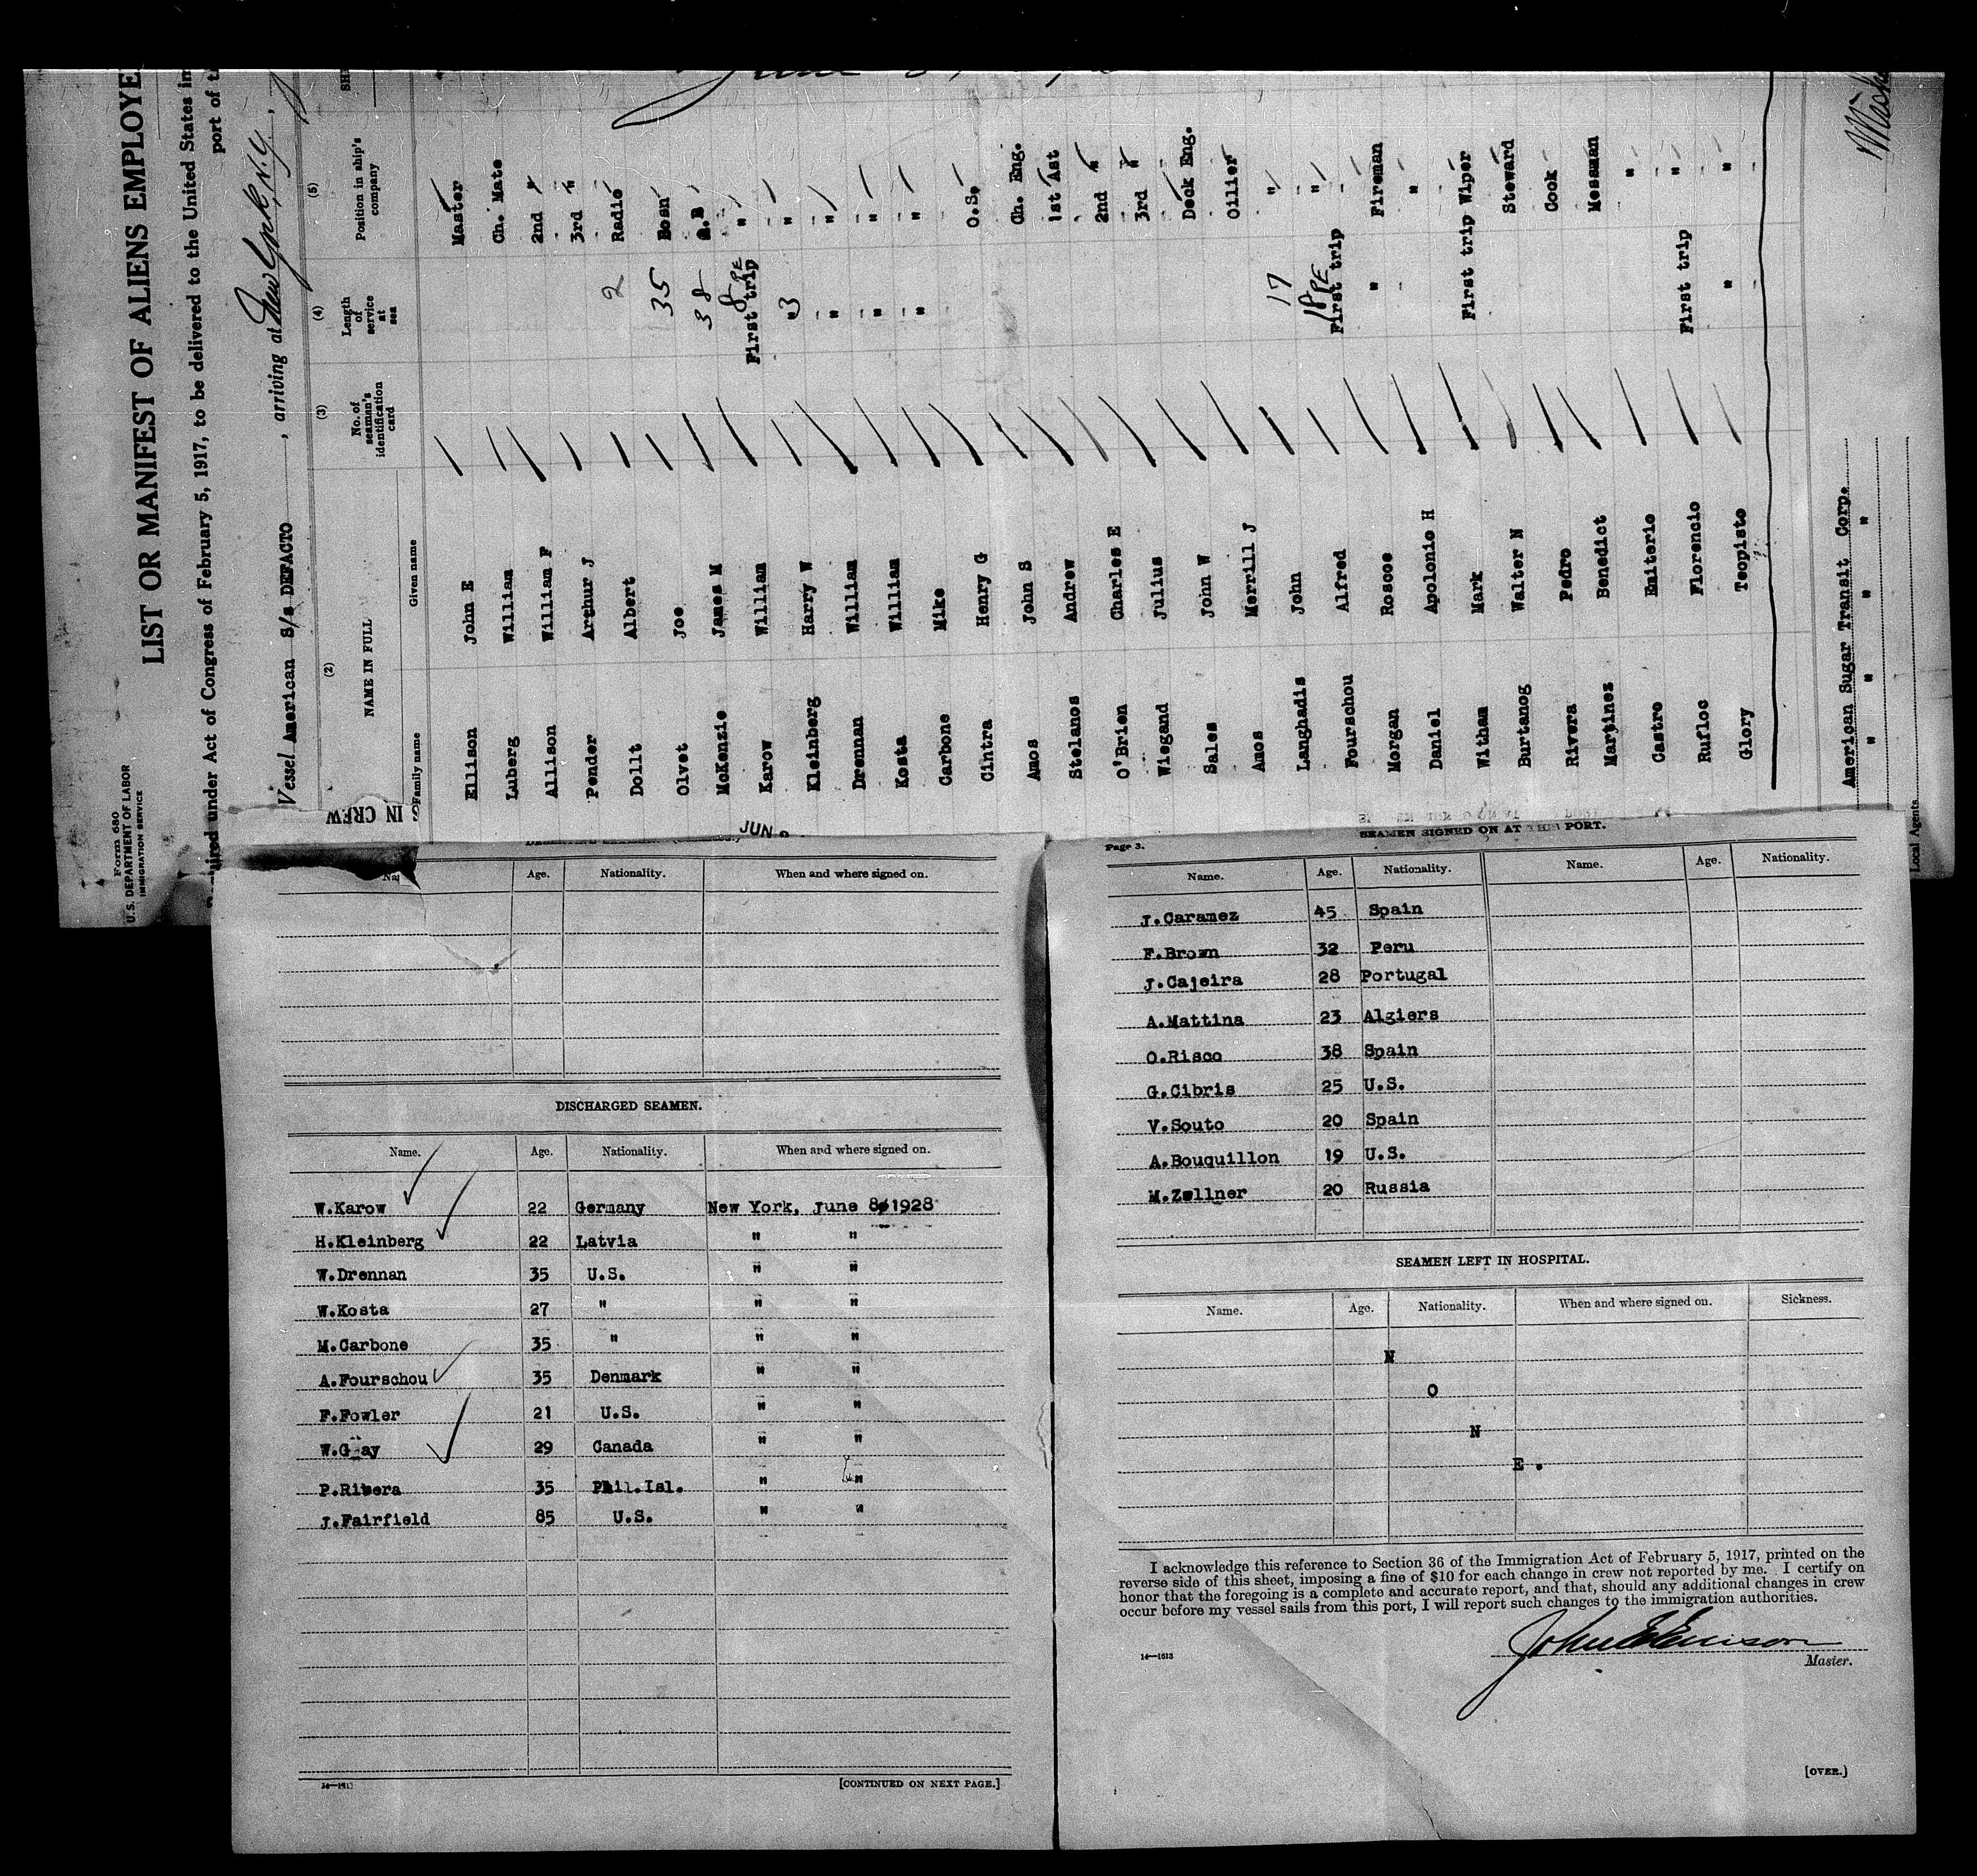 Form 680
U.S. DEPARTMENT OF LABOR
IMMIGRATION SERVICE
LIST OR MANIFEST OF ALIENS EMPLOYE
uired under Act of Congress of February 5, 1917, to be delivered to the United States im
port of t
Vessel American S/s DEFACTO , arriving at New York, N.Y.,
IN CREW
(2) (3) (4) (5)
NAME IN FULL No. of seaman's identification card Length of service at sea Position in ship's company SHI
Family name Given name
Ellison John E Master
Luberg William Ch. Mate
Allison William F 2nd "
Pender Arthur J 3rd "
Dollt Albert 2 Radio
Olvet Joe 35 Bosn
McKenzie James M 38 A.B
Karow William First trip 8 PE "
Kleinberg Harry W " 3 "
Drennan William " "
Kosta William " "
Carbone Mike " "
Cintra Henry G O.S.
Amos John S Ch. Eng.
Stelanos Andrew 1st Ast
O'Brien Charles E 2nd "
Wiegand Julius 3rd "
Sales John W Deck Eng.
Amos Merrill J Oiler
Langhadis John 17 "
Fourschou Alfred First trip 18 PE "
Morgan Roscoe " Fireman
Daniel Apolonio H "
Witham Mark First trip Wiper
Burtanog Walter N Steward
Rivera Pedro Cook
Martinez Benedict Messman
Castro Emiterio "
Rufloc Florencio First trip "
Glory Teopisto " "
American Sugar Transit Corp.
" " " "
Local Agents
JUN
Na Age. Nationality. When and where signed on.
DISCHARGED SEAMEN.
Name. Age. Nationality. When and where signed on.
W.Karow 22 Germany New York, June 8, 1928
H.Kleinberg 22 Latvia " "
W.Drennan 35 U.S. " "
W.Kosta 27 " " "
M.Carbone 35 " " "
A.Fourschou 35 Denmark " "
F.Fowler 21 U.S. " "
W.Gray 29 Canada " "
P.Rivera 35 Phil.Isl. " "
J.Fairfield 85 U.S. " "
[CONTINUED ON NEXT PAGE.]
Page 3.
SEAMEN SIGNED ON AT THIS PORT.
Name. Age. Nationality. Name. Age. Nationality.
J.Caramez 45 Spain
F.Brown 32 Peru
J.Cajeira 28 Portugal
A.Mattina 23 Algiers
O.Risco 38 Spain
G.Cibris 25 U.S.
V.Souto 20 Spain
A.Bouquillon 19 U.S.
M.Zellner 20 Russia
SEAMEN LEFT IN HOSPITAL.
Name. Age. Nationality. When and where signed on. Sickness.
N
O
N
E .
I acknowledge this reference to Section 36 of the Immigration Act of February 5, 1917, printed on the
reverse side of this sheet, imposing a fine of $10 for each change in crew not reported by me. I certify on
honor that the foregoing is a complete and accurate report, and that, should any additional changes in crew
occur before my vessel sails from this port, I will report such changes to the immigration authorities.
John E Ellison
14—1613 Master.
[OVER.]